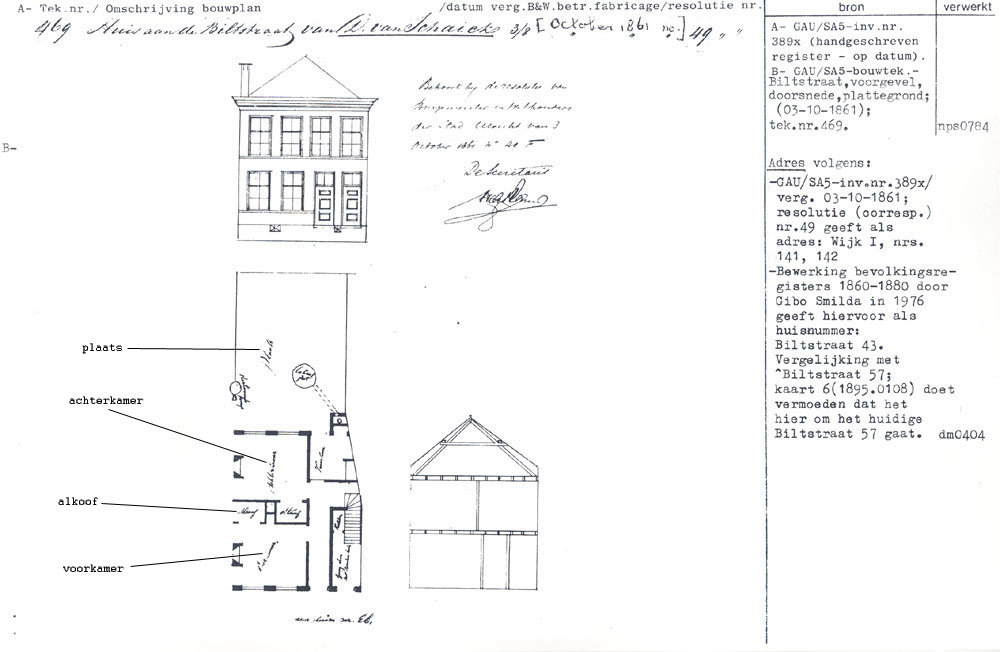 A- Tek.nr./ Omschrijving bouwplan /datum verg.B&W.betr.fabricage/resolutie nr.
469 Huis aan de Biltstraat van D. van Schaick 3/8 [October 1861 no.] 49 " "
B-
Behoort bij de resolutie van
Burgemeester en Wethouders
der Stad Utrecht van 3
October 1861 No 49
De Secretaris
plaats
achterkamer
alkoof
voorkamer
plaats
achterkamer
alkoof
alkoof
keuken
voorkamer
bron
verwerkt
A- GAU/SA5-inv.nr.
389x (handgeschreven
register - op datum).
B- GAU/SA5-bouwtek.-
Biltstraat,voorgevel,
doorsnede,plattegrond;
(03-10-1861);
tek.nr.469.
nps0784
Adres volgens:
-GAU/SA5-inv.nr.389x/
verg. 03-10-1861;
resolutie (oorresp.)
nr.49 geeft als
adres: Wijk I, nrs.
141, 142
-Bewerking bevolkingsre-
gisters 1860-1880 door
Gibo Smilda in 1976
geeft hiervoor als
huisnummer:
Biltstraat 43.
Vergelijking met
^Biltstraat 57;
kaart 6(1895.0108) doet
vermoeden dat het
hier om het huidige
Biltstraat 57 gaat. dm0404